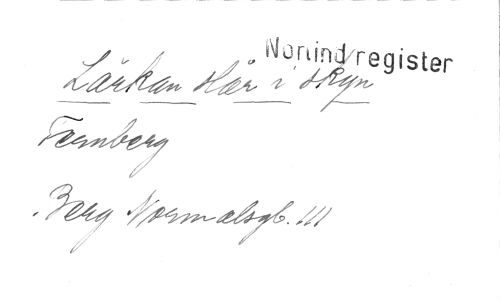 Norlind/register
Lärkan slår i skyn
Fernberg
Berg Normalsgb. III